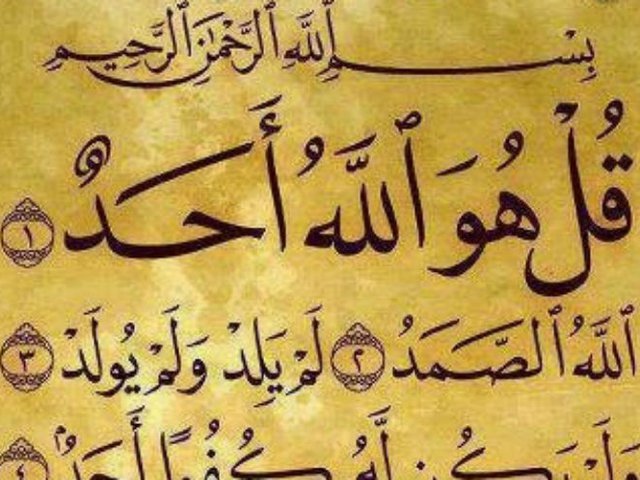 بِسْمِ ٱللَّهِ ٱلرَّحْمَٰنِ ٱلرَّحِيمِ
قُلْ هُوَ ٱللَّهُ أَحَدٌ ١
ٱللَّهُ ٱلصَّمَدُ ٢ لَمْ يَلِدْ وَلَمْ يُولَدْ ٣
وَلَمْ يَكُن لَّهُ كُفُوًا أَحَدٌۢ ٤